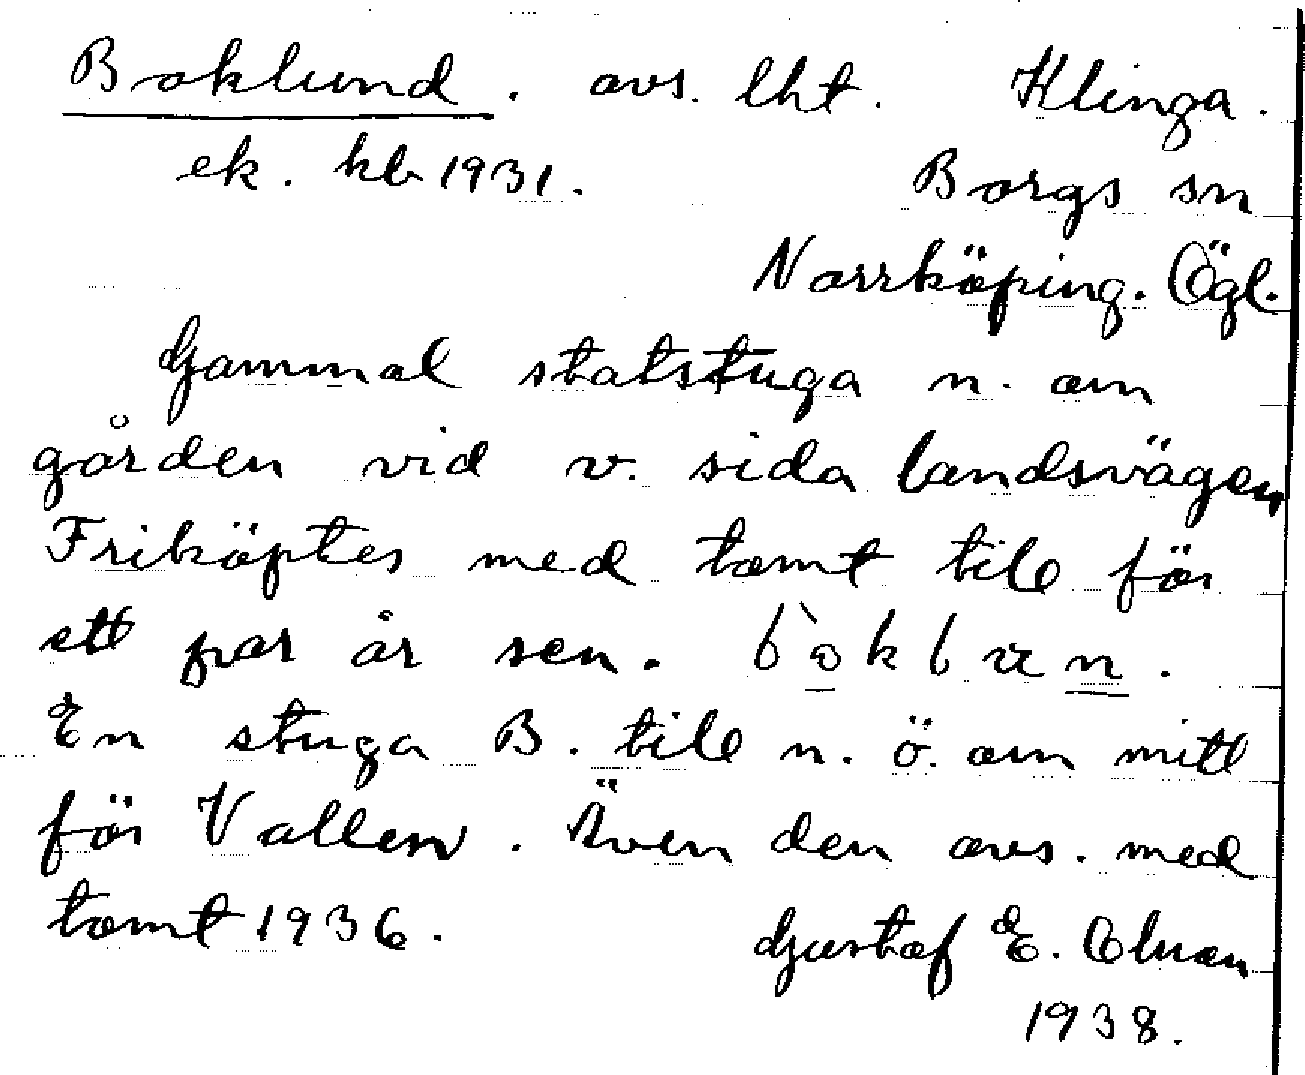 Boklund. avs. lht. Klinga.
ek. kb 1931. Borgs sn
Norrköping. Ögl.
Gammal statstuga n. om
gården vid v. sida landsvägen
Friköptes med tomt till för
ett par år sen.
En stuga B. till n. ö. om mitt
för Vallen. Även den avs. med
tomt 1936. Gustaf E.
1938.